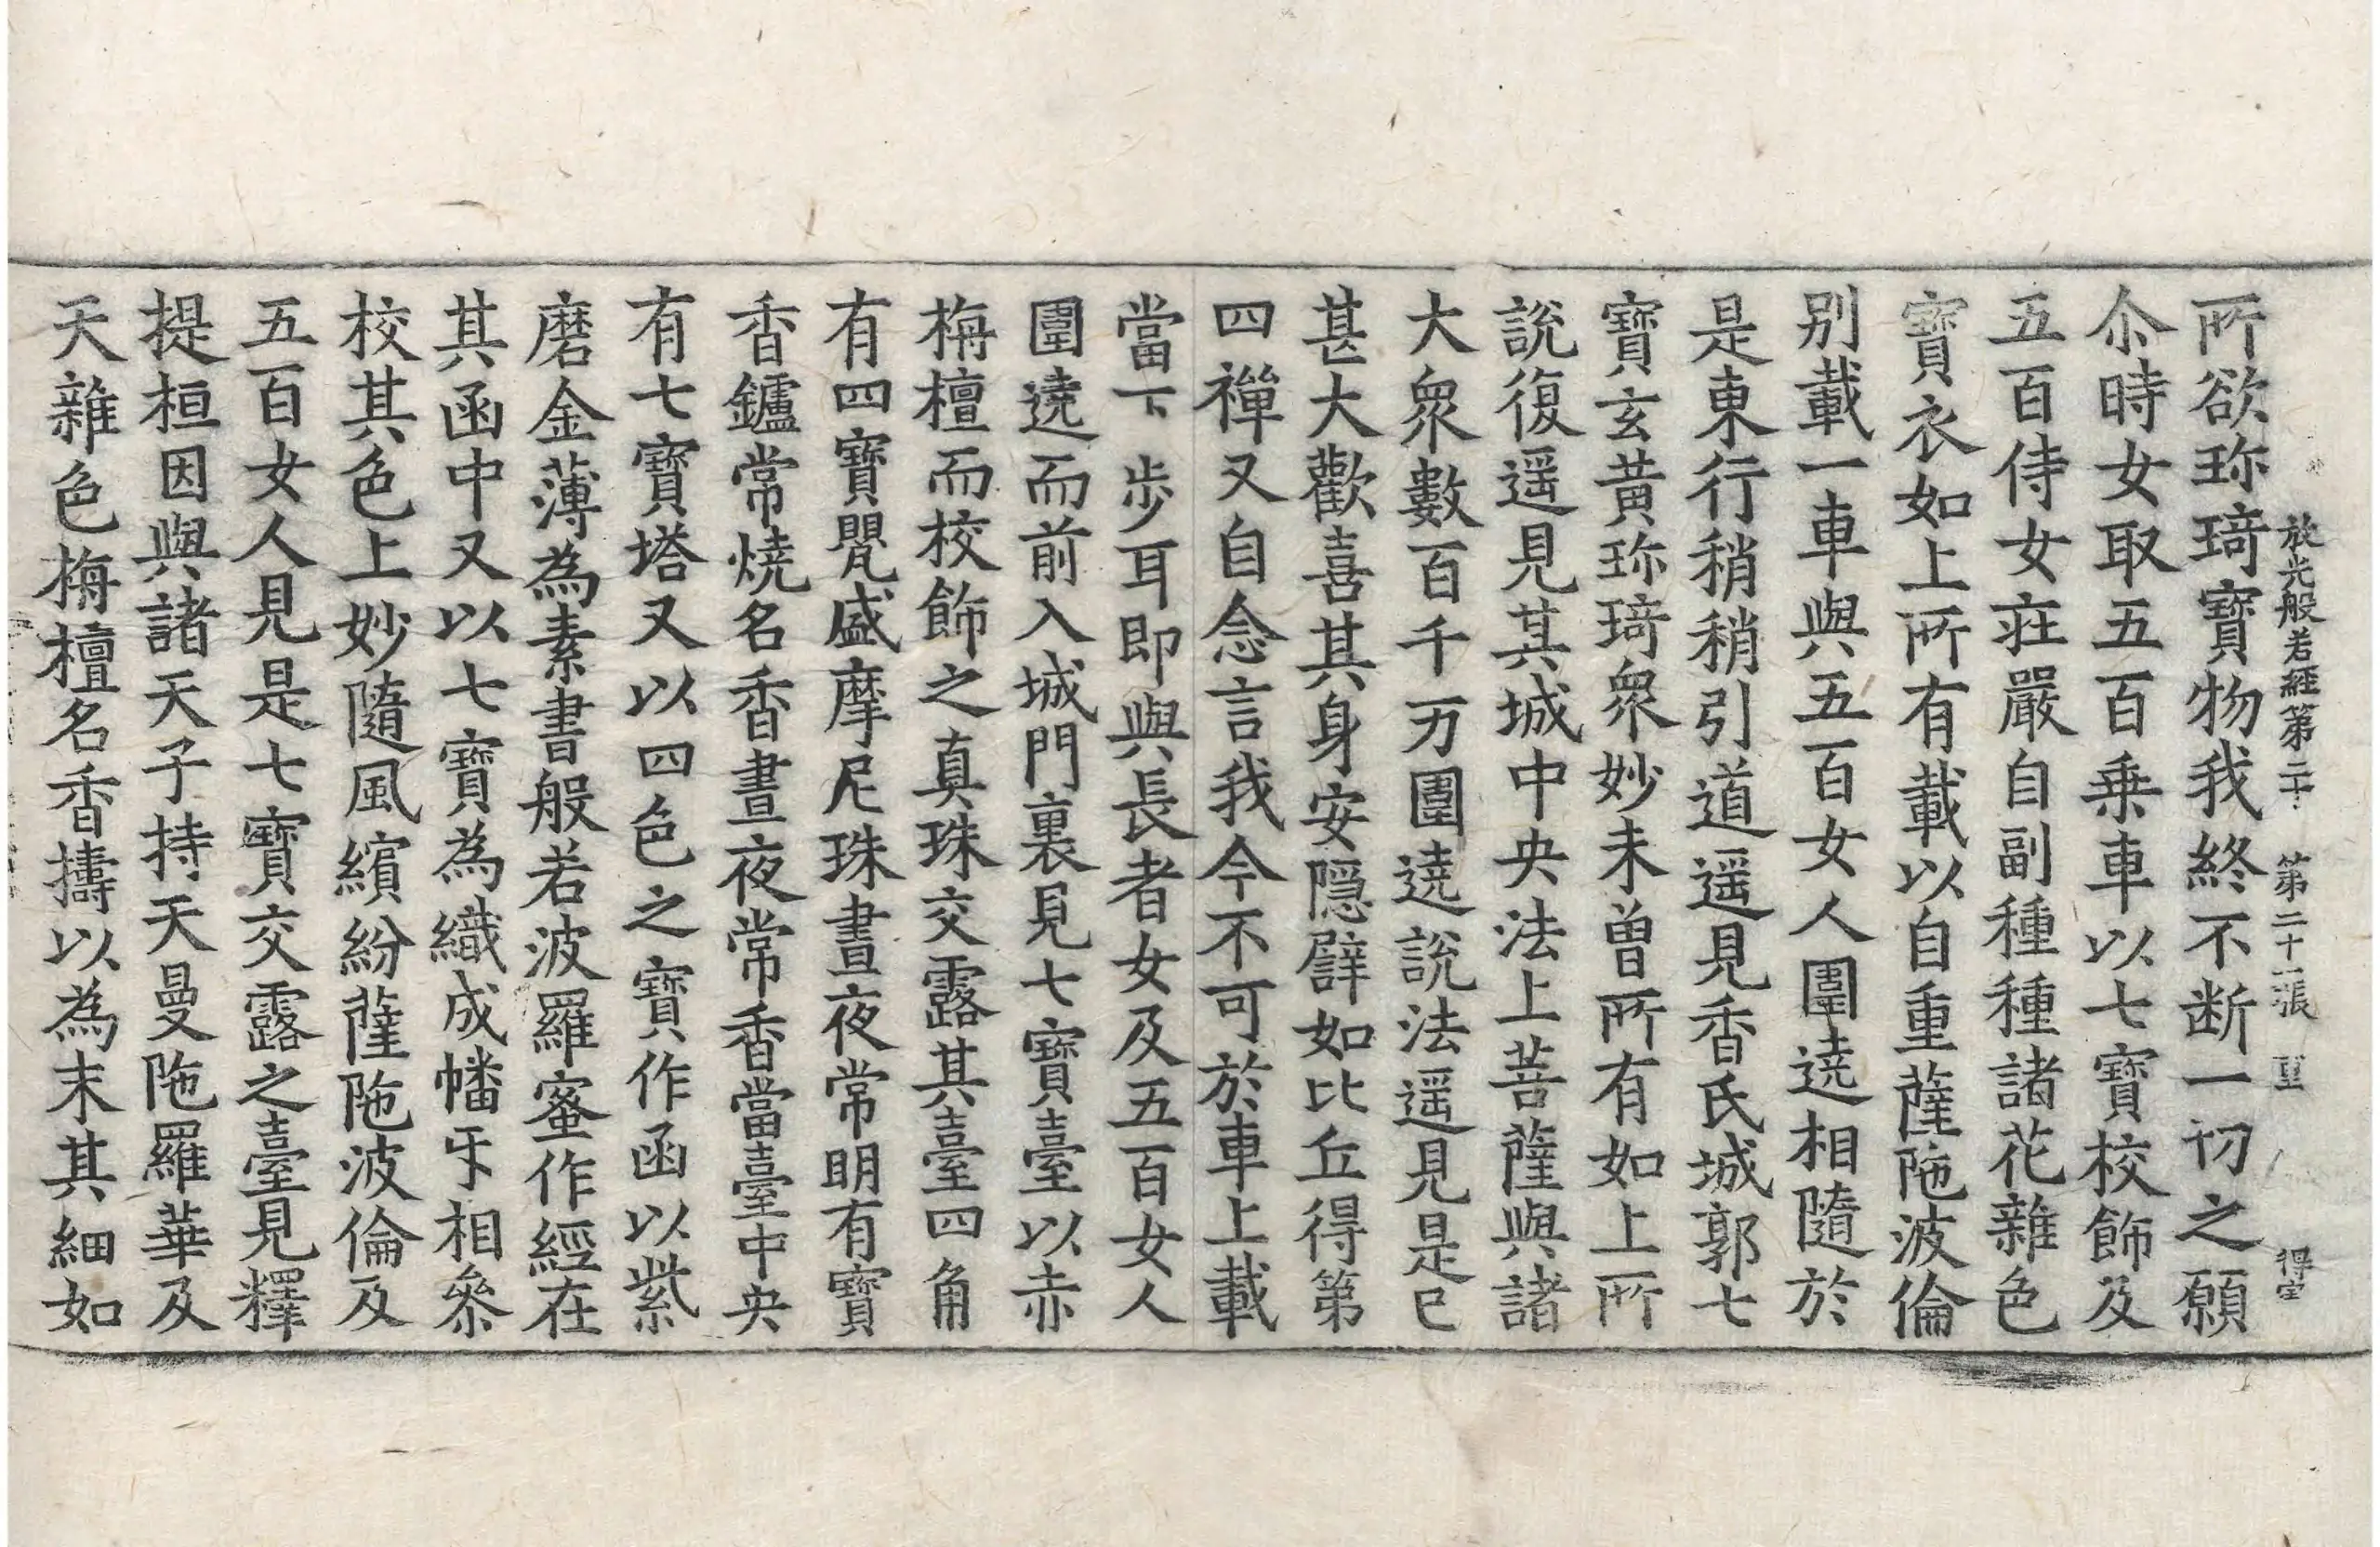 放光般若經第二十 第二十一張 重 得宝
所欲珎琦寶物我終不断一切之願
尒時女取五百乗車以七寶校飾及
五百侍女㽵嚴自副種種諸花雜色
寶衣如上所有載以自重薩陁波倫
别載一車與五百女人圍遶相隨於
是東行稍稍引道遥見香氏城郭七
寶玄黄珎琦衆妙未曽所有如上所
說復遥見其城中央法上菩薩與諸
大衆數百千万圍遶說法遥見是已
甚大歡喜其身安隠譬如比丘得第
四禪又自念言我今不可於車上載
當下步耳即與長者女及五百女人
圍遶而前入城門裏見七寶臺以赤
栴檀而校飾之真珠交露其臺四角
有四寶甖盛摩尼珠晝夜常明有寶
香鑪常燒名香晝夜常香當臺中央
有七寶塔又以四色之寶作函以紫
磨金薄為素書般若波羅蜜作經在
其函中又以七寶為織成幡㸦相叅
校其色上妙隨風繽紛薩陁波倫及
五百女人見是七寶交露之臺見釋
提桓因與諸天子持天曼陁羅華及
天雜色栴檀名香擣以為末其細如